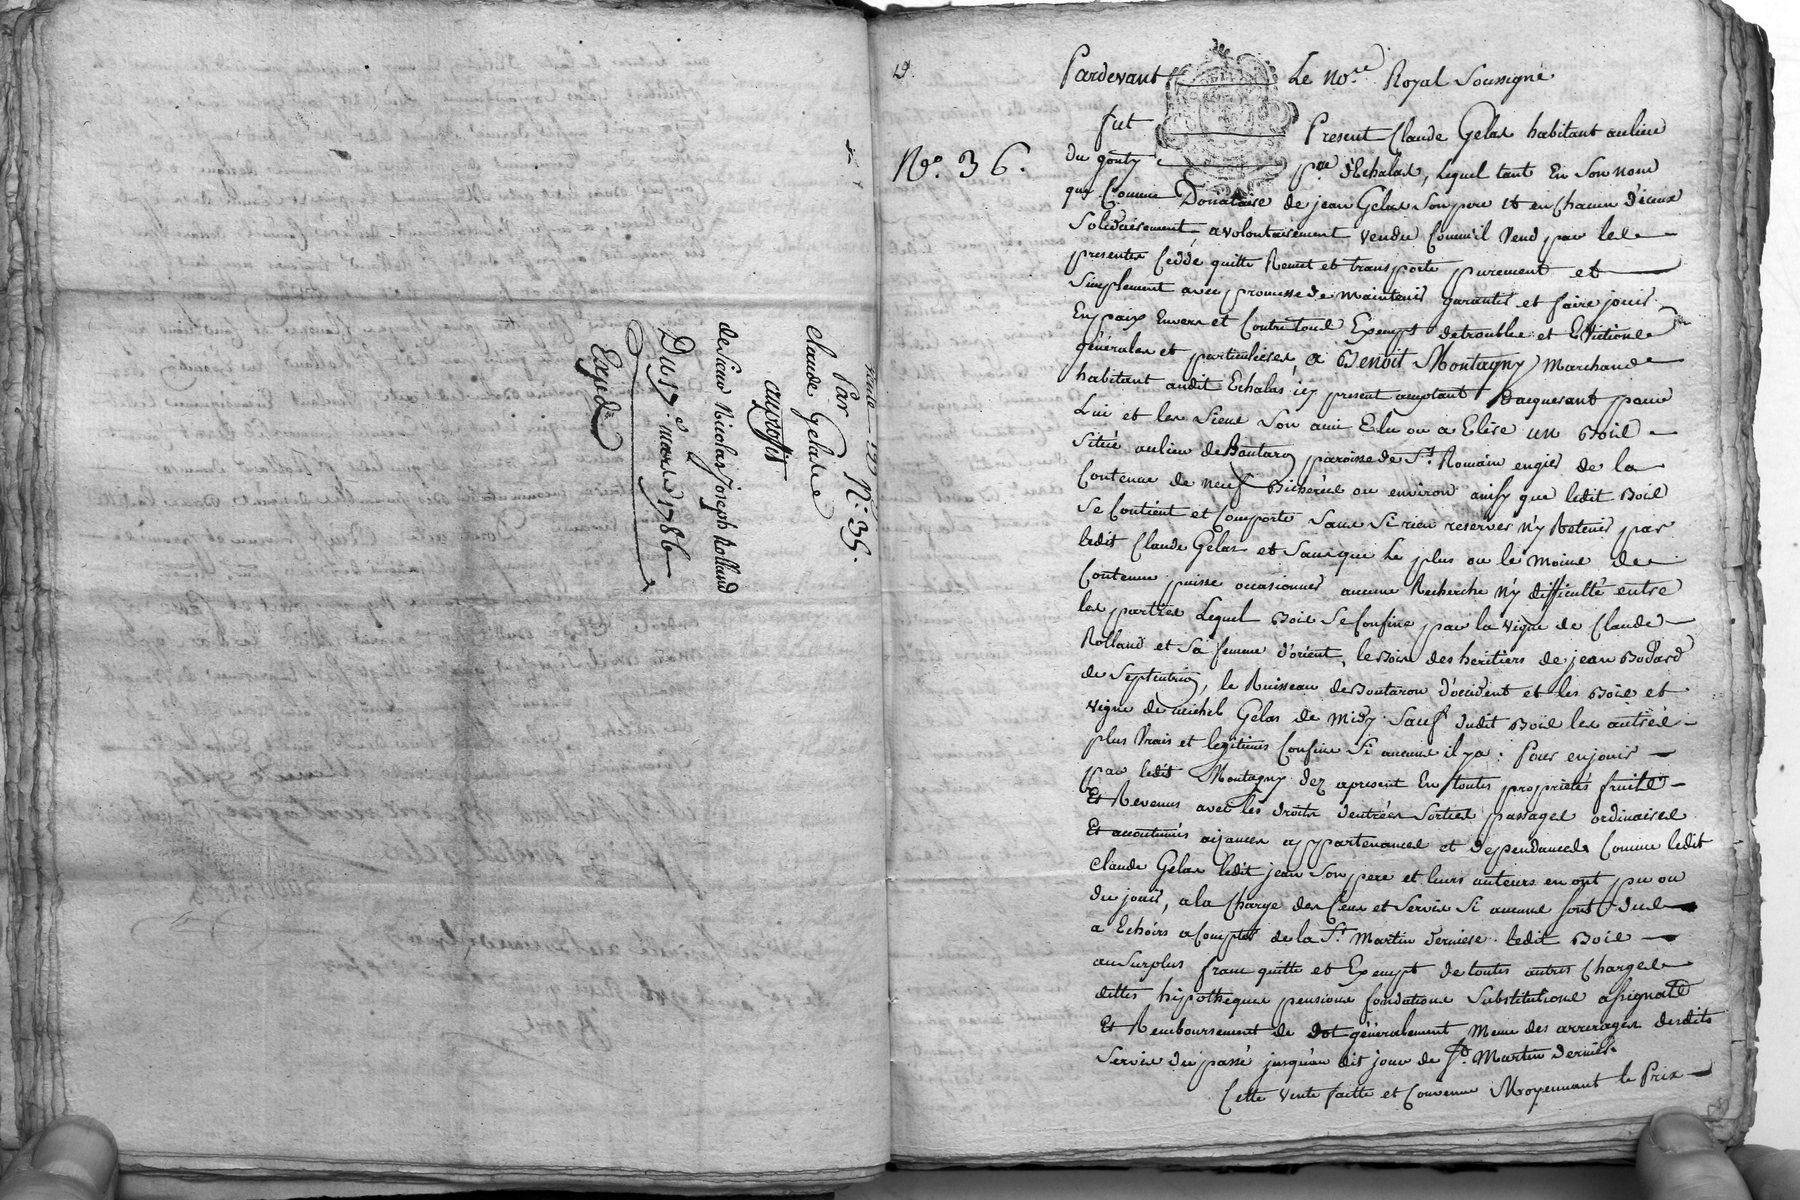 N°. 35.
Par
Claude Gelas
au profit
de Sieur Nicolas Joseph Rolland
Du 17e. mars 1786
Expédié
19.
N°. 36.
Pardevant Le No.re Royal Soussigné
fut Present Claude Gelas habitant au lieu
du gouty p.sse d'Echalas, Lequel tant En Son nom
que Comme Donataire de jean Gelas Son pere et en Chacun d'iceux
Solidairement a volontairement vendu Comm'il Vend par les
presentes Ceddé quitte Remet et transporte purement et
Simplement avec promesse de maintenir garantir et faire jouir
En paix Envers et Contre tous Exempt de trouble et Evictions
générales et particulieres, a Benoit Montagny Marchand
habitant audit Echalas, icy present acceptant Et acquerant pour
Lui et les Siens Son ami Elu ou a Elire un Bois
Situé au lieu de Boutaron paroisse de St. Romain en gier de la
Contenue de neuf Bicherées ou environ ainsy que ledit Bois
Se Contient et Comporte Sans Si rien reserver n'y Retenir par
ledit Claude Gelas et Sans que Le plus ou le moins de
Contenue puisse occasionner aucune Recherche n'y difficulté entre
les parties Lequel Bois Se Confine par la vigne de Claude
Rolland et Sa femme d'orient, le Bois des héritiers de jean Bodard
de Septentrion, le Ruisseau de Boutaron d'occident et les Bois et
vigne de michel Gelas de midy. Sauf dudit Bois les autres
plus Vrais et legitimes Confins Si aucuns il y a : Pour en jouir
par ledit Montagny dez apresent En toutes proprietés fruits
Et Revenus avec les droits d'entrées Sorties passages ordinaires
Et accoutumés aisances appartenances et dependances Comme ledit
Claude Gelas ledit jean Son pere et leurs auteurs en ont pu ou
du jouir, a la Charge des Cens et Servis Si aucuns sont dus
a Echoirs a Compter de la St. Martin derniere. ledit Bois
au Surplus franc quitte et Exempt de toutes autres Charges
dettes hypotheques pensions fondations Substitutions assignats
Et Remboursement de dot généralement Meme des arrerages desdits
Servis du passé jusqu'au dit jour de St. Martin dernier.
Cette Vente faitte et Convenue Moyennant le Prix